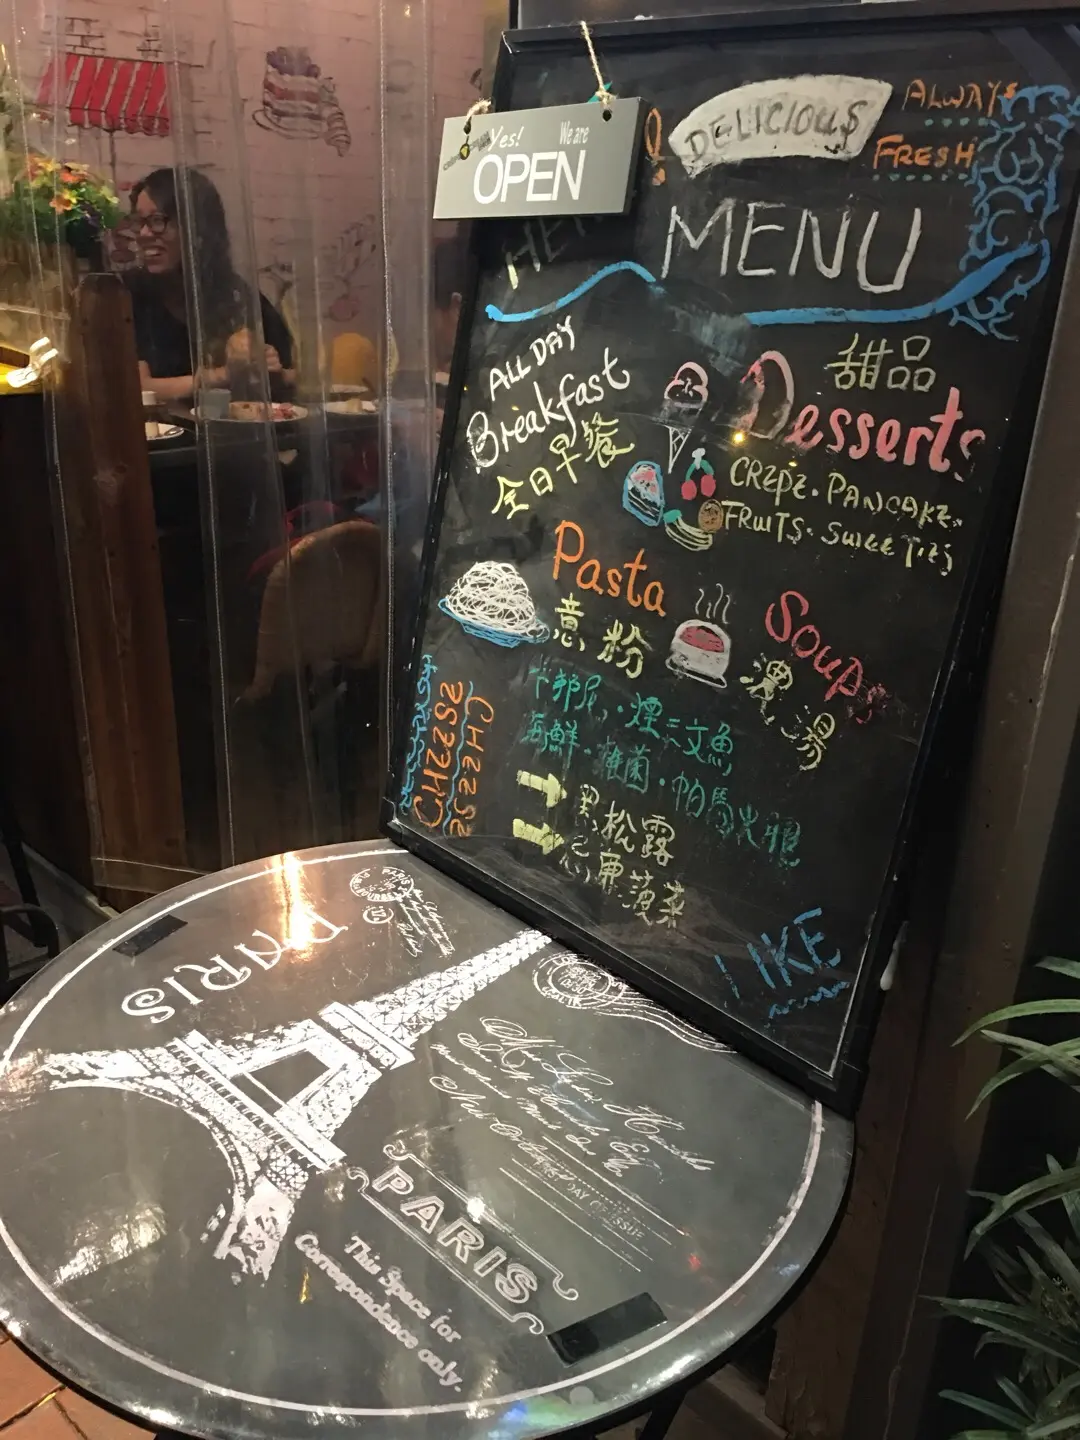 Yes! We are
OPEN
DELICIOUS
ALWAYS
FRESH
MENU
ALL DAY
Breakfast
全日早餐
甜品
Desserts
CREPE. PANCAKE.
FRUITS. SWEETIES
Pasta
意粉
Soups
湯
卡邦尼.煙三文魚
海鮮.雜菌.帕馬火腿
黑松露
忌廉菠菜
CHEESE
CHEESE
LIKE
PARIS
PARIS
FIRST DAY OF ISSUE
PARIS
This Space for
Correspondence only.